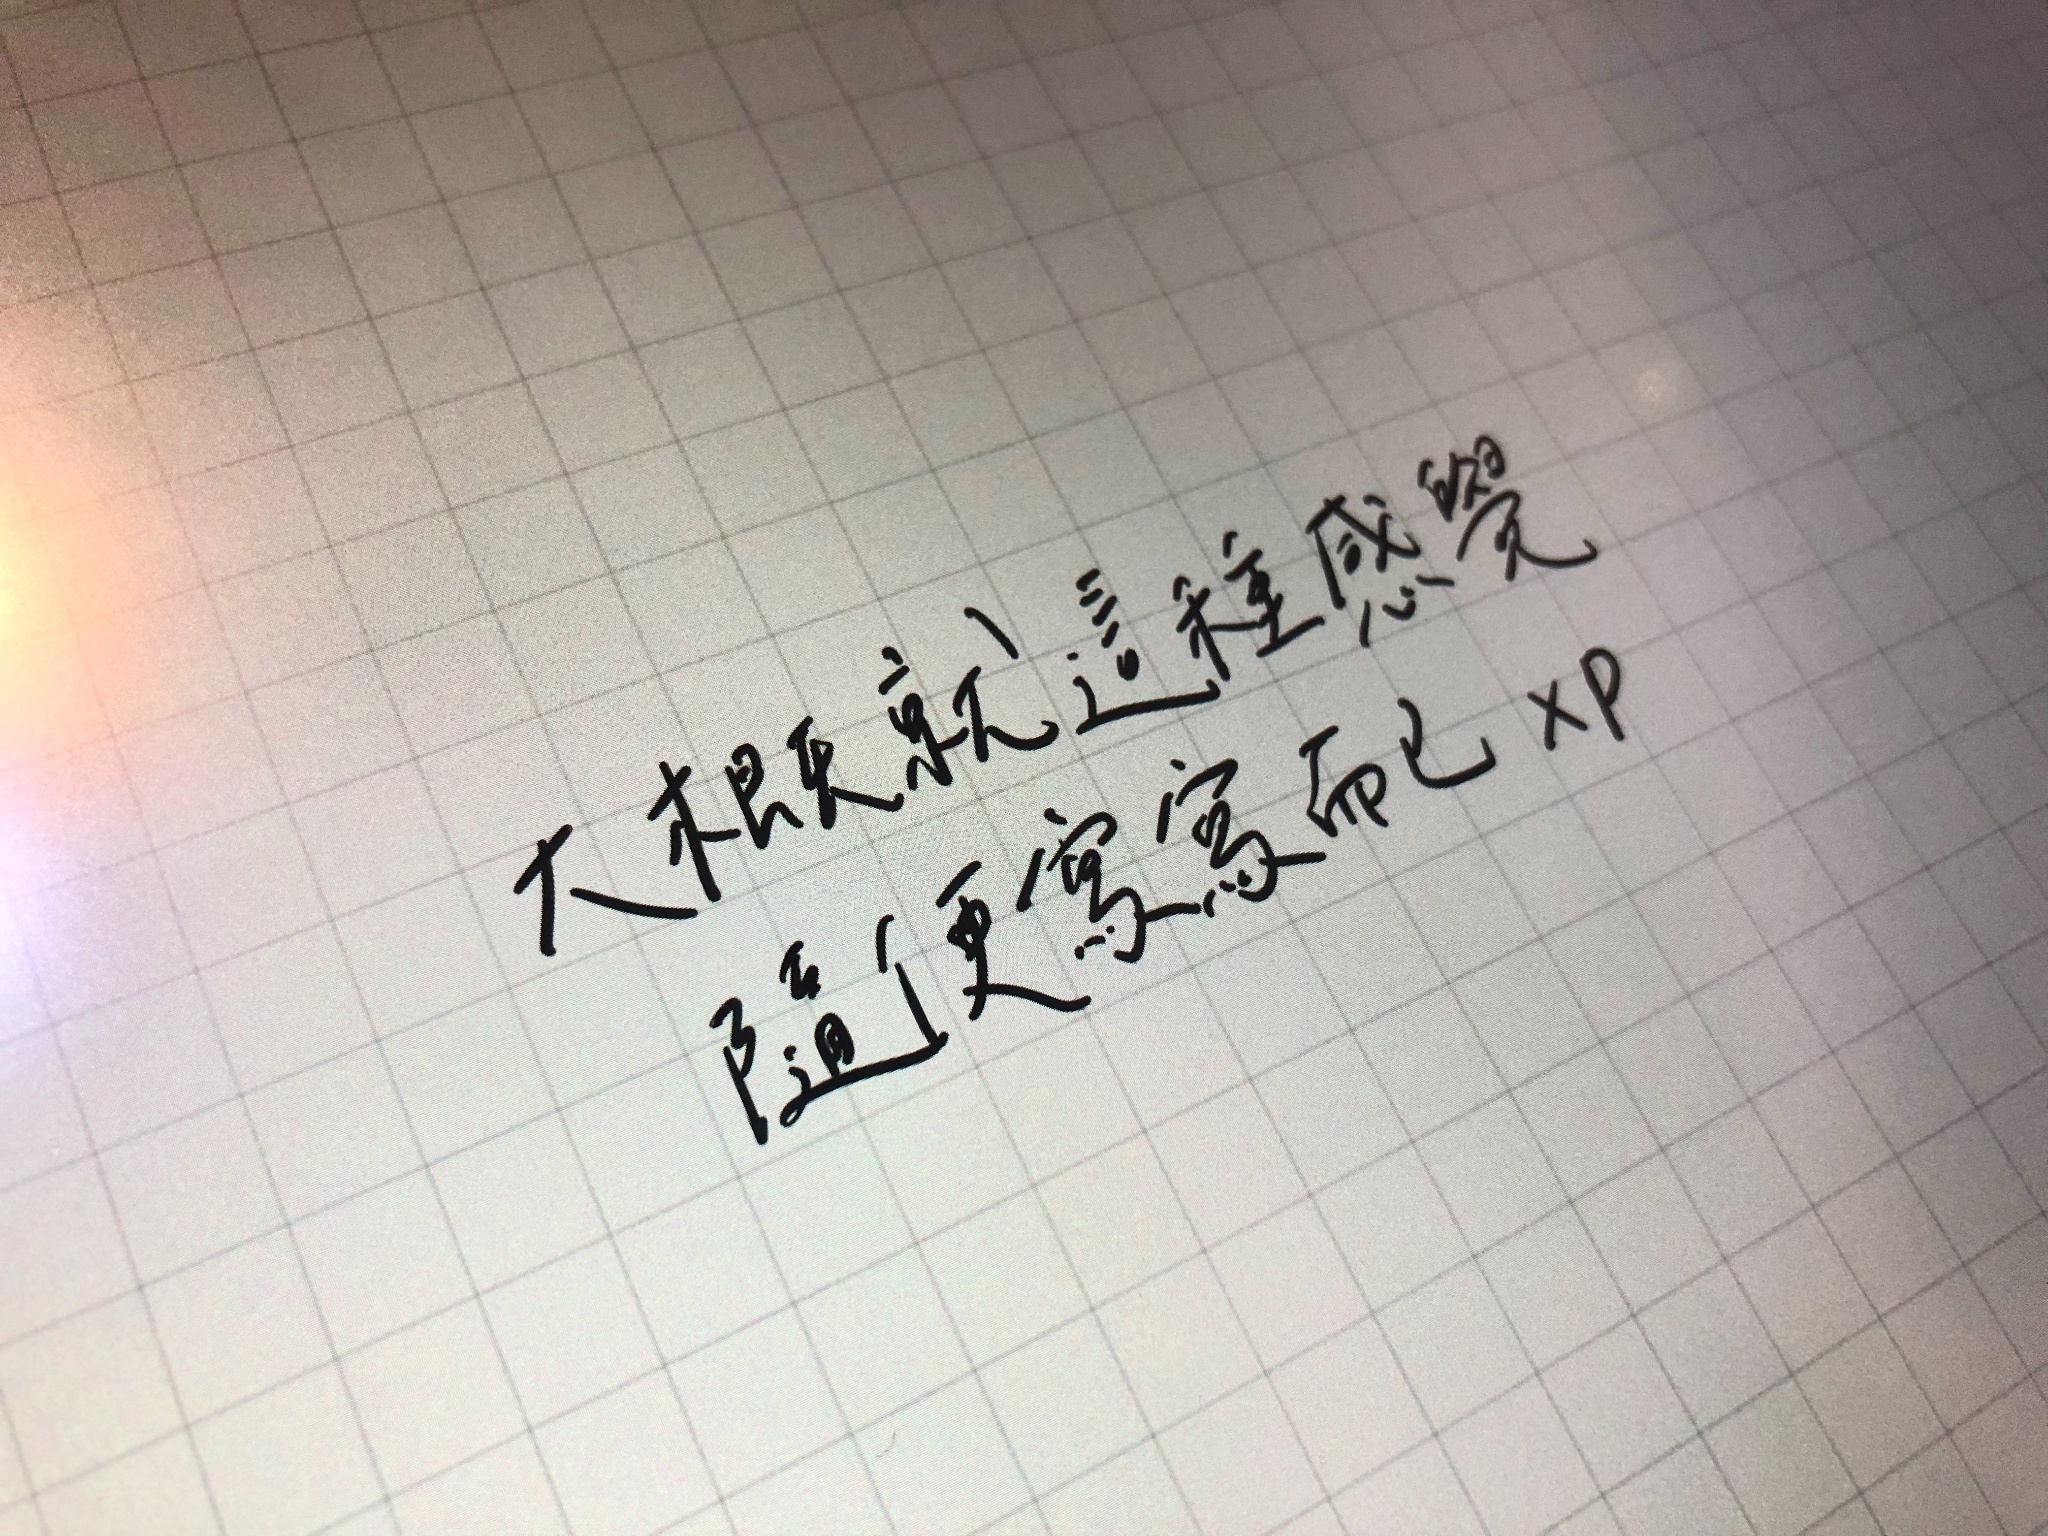 大概就這種感覺
隨便寫寫而已 XP